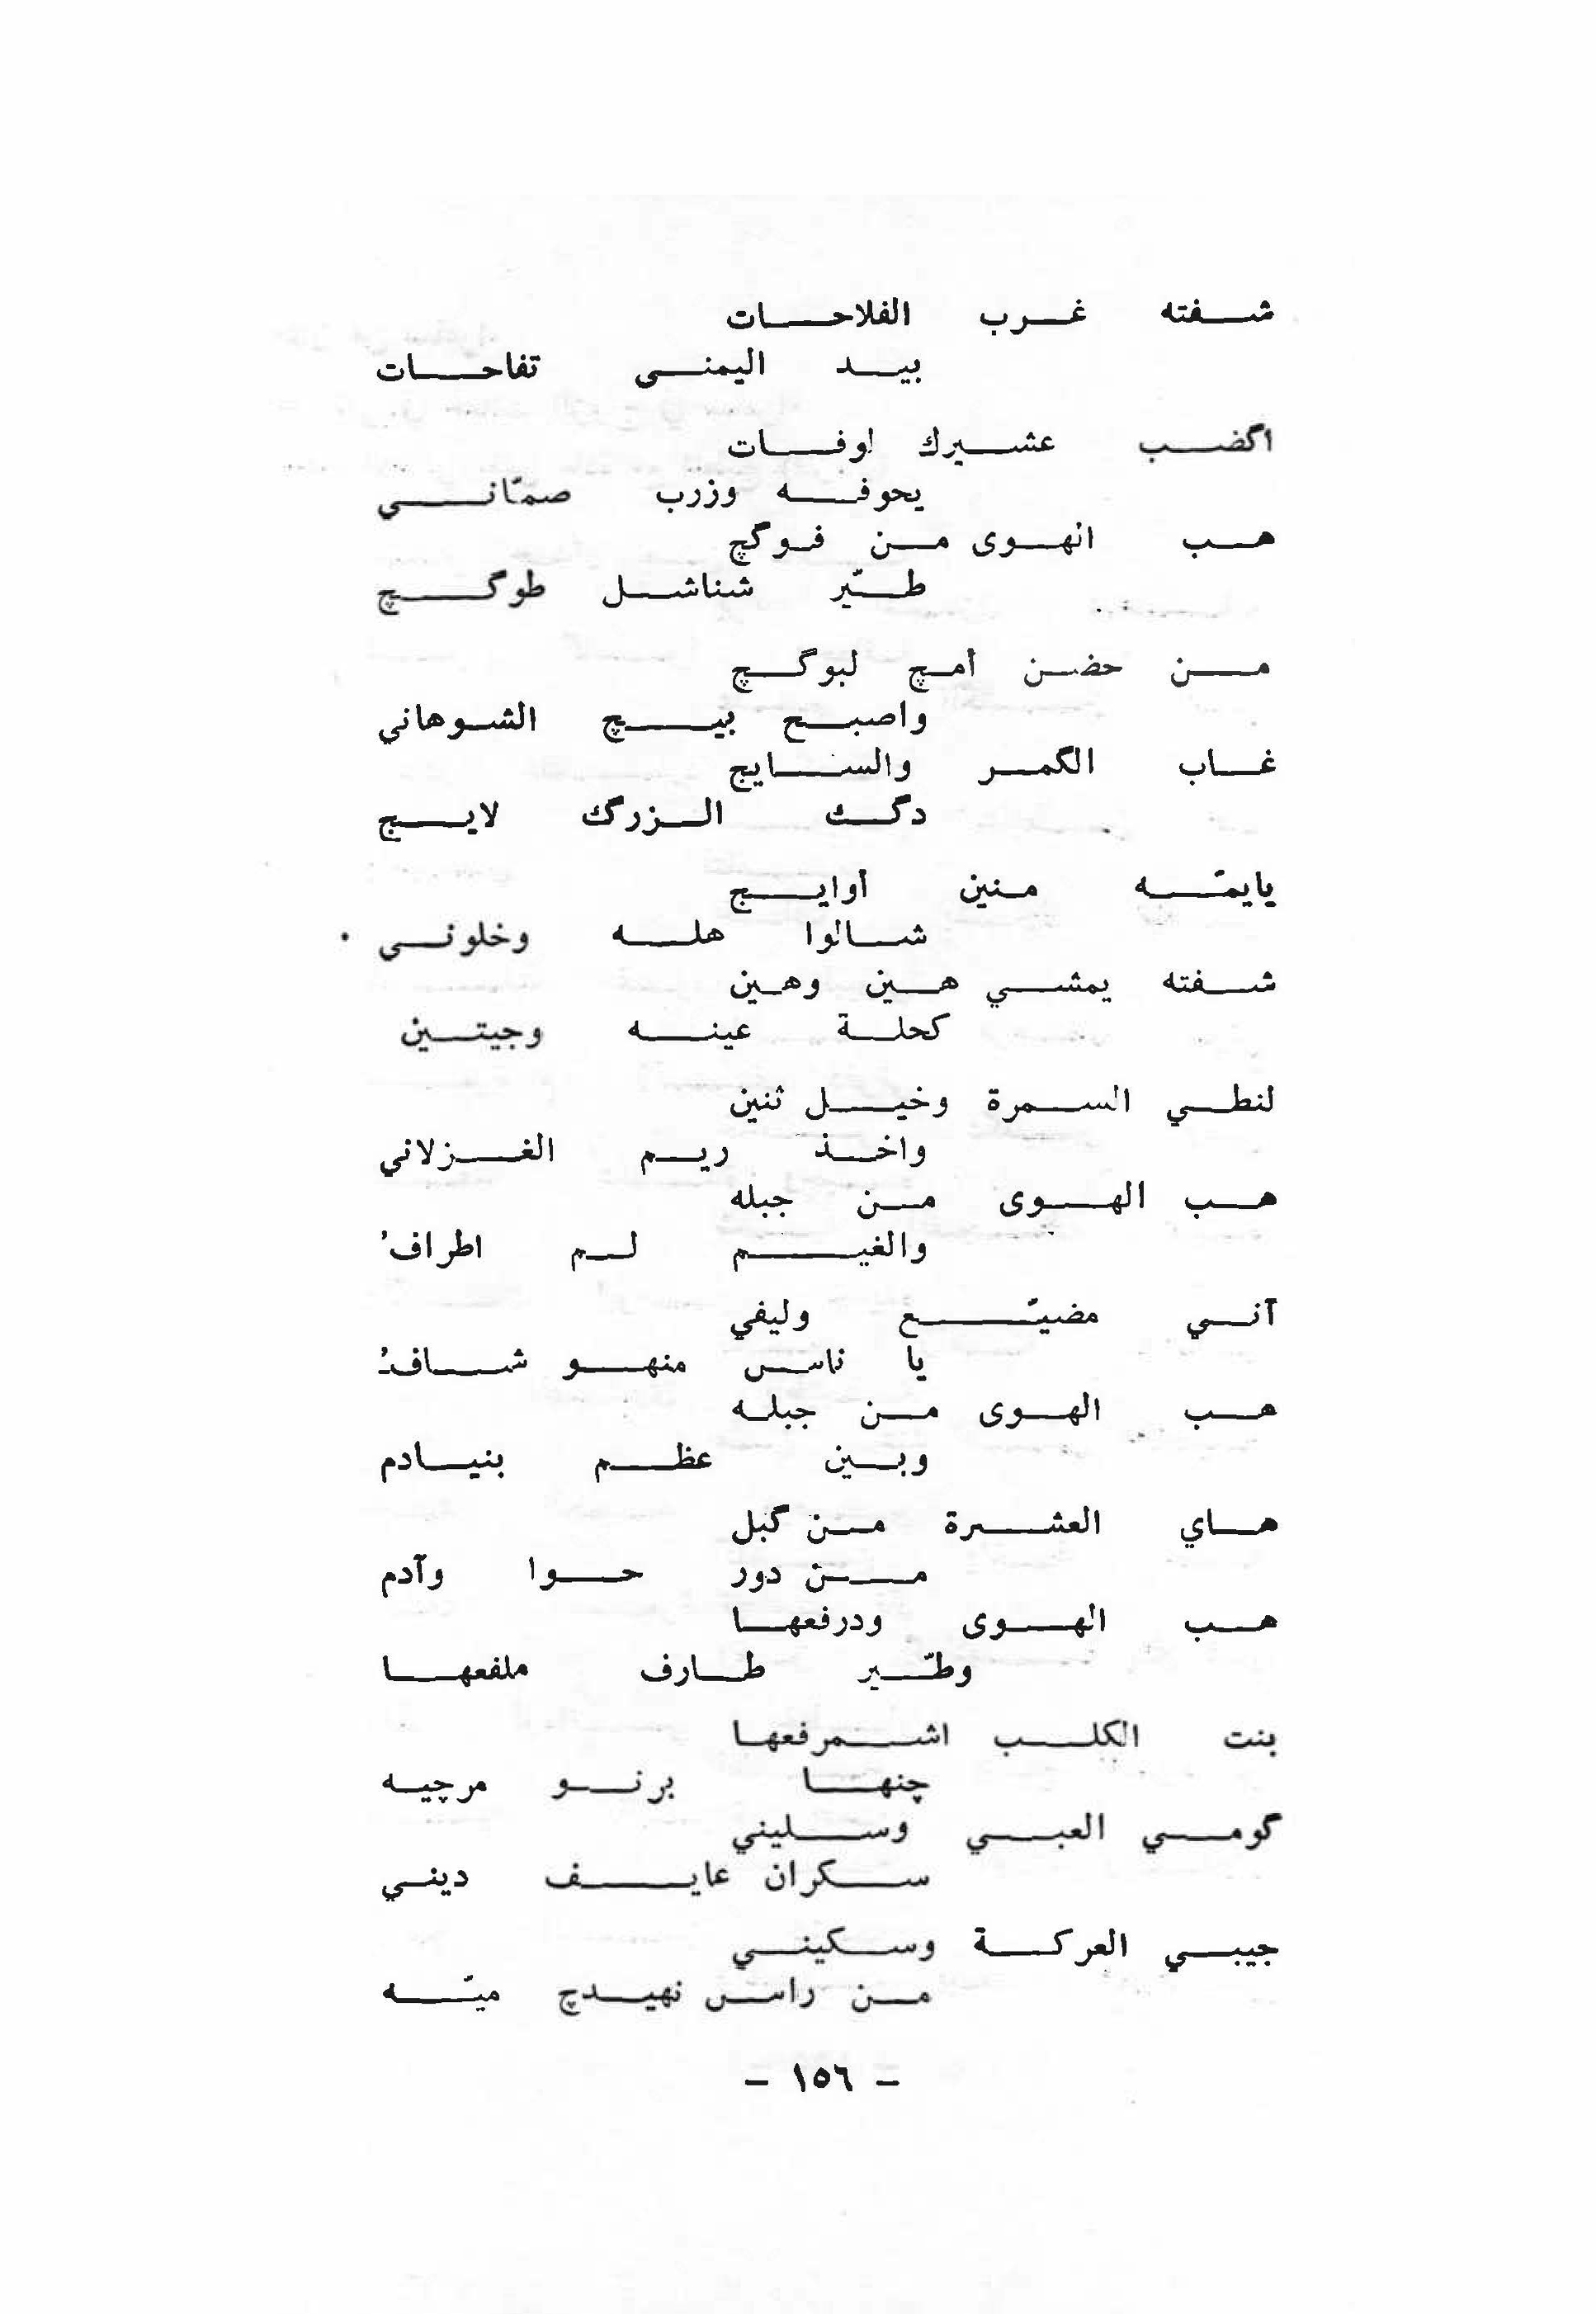 شفته غرب الفلاحات
بيد اليمنى تفاحات
اگضب عشيرك اوفات
يحوفه وزرب صمّاني
هب الهوى من فوگچ
طيّر شناشل طوگچ
من حضن أمچ لبوگچ
واصبح بيچ الشوهاني
غاب الگمر والسايج
دگك الزرگك لايج
يايمّه منين أوايج
شالوا هله وخلوني ٠
شفته يمشي هين وهين
كحلة عينه وجيتين
لنطي السمرة وخيل ثنين
واخذ ريم الغزلاني
هب الهوى من جبله
والغيم لم اطرافُ
آني مضيّع وليفي
يا ناس منهو شافُ
هب الهوى من جبله
وبين عظم بنيادم
هاي العشرة من گبل
من دور حوا وآدم
هب الهوى ودرفعها
وطيّر طارف ملفعها
بنت الكلب اشمرفعها
چنها برنو مرچيه
گومي العبي وسليني
سكران عايف ديني
جيبي العركة وسكيني
من راس نهيدچ ميّه
- ١٥٦ -